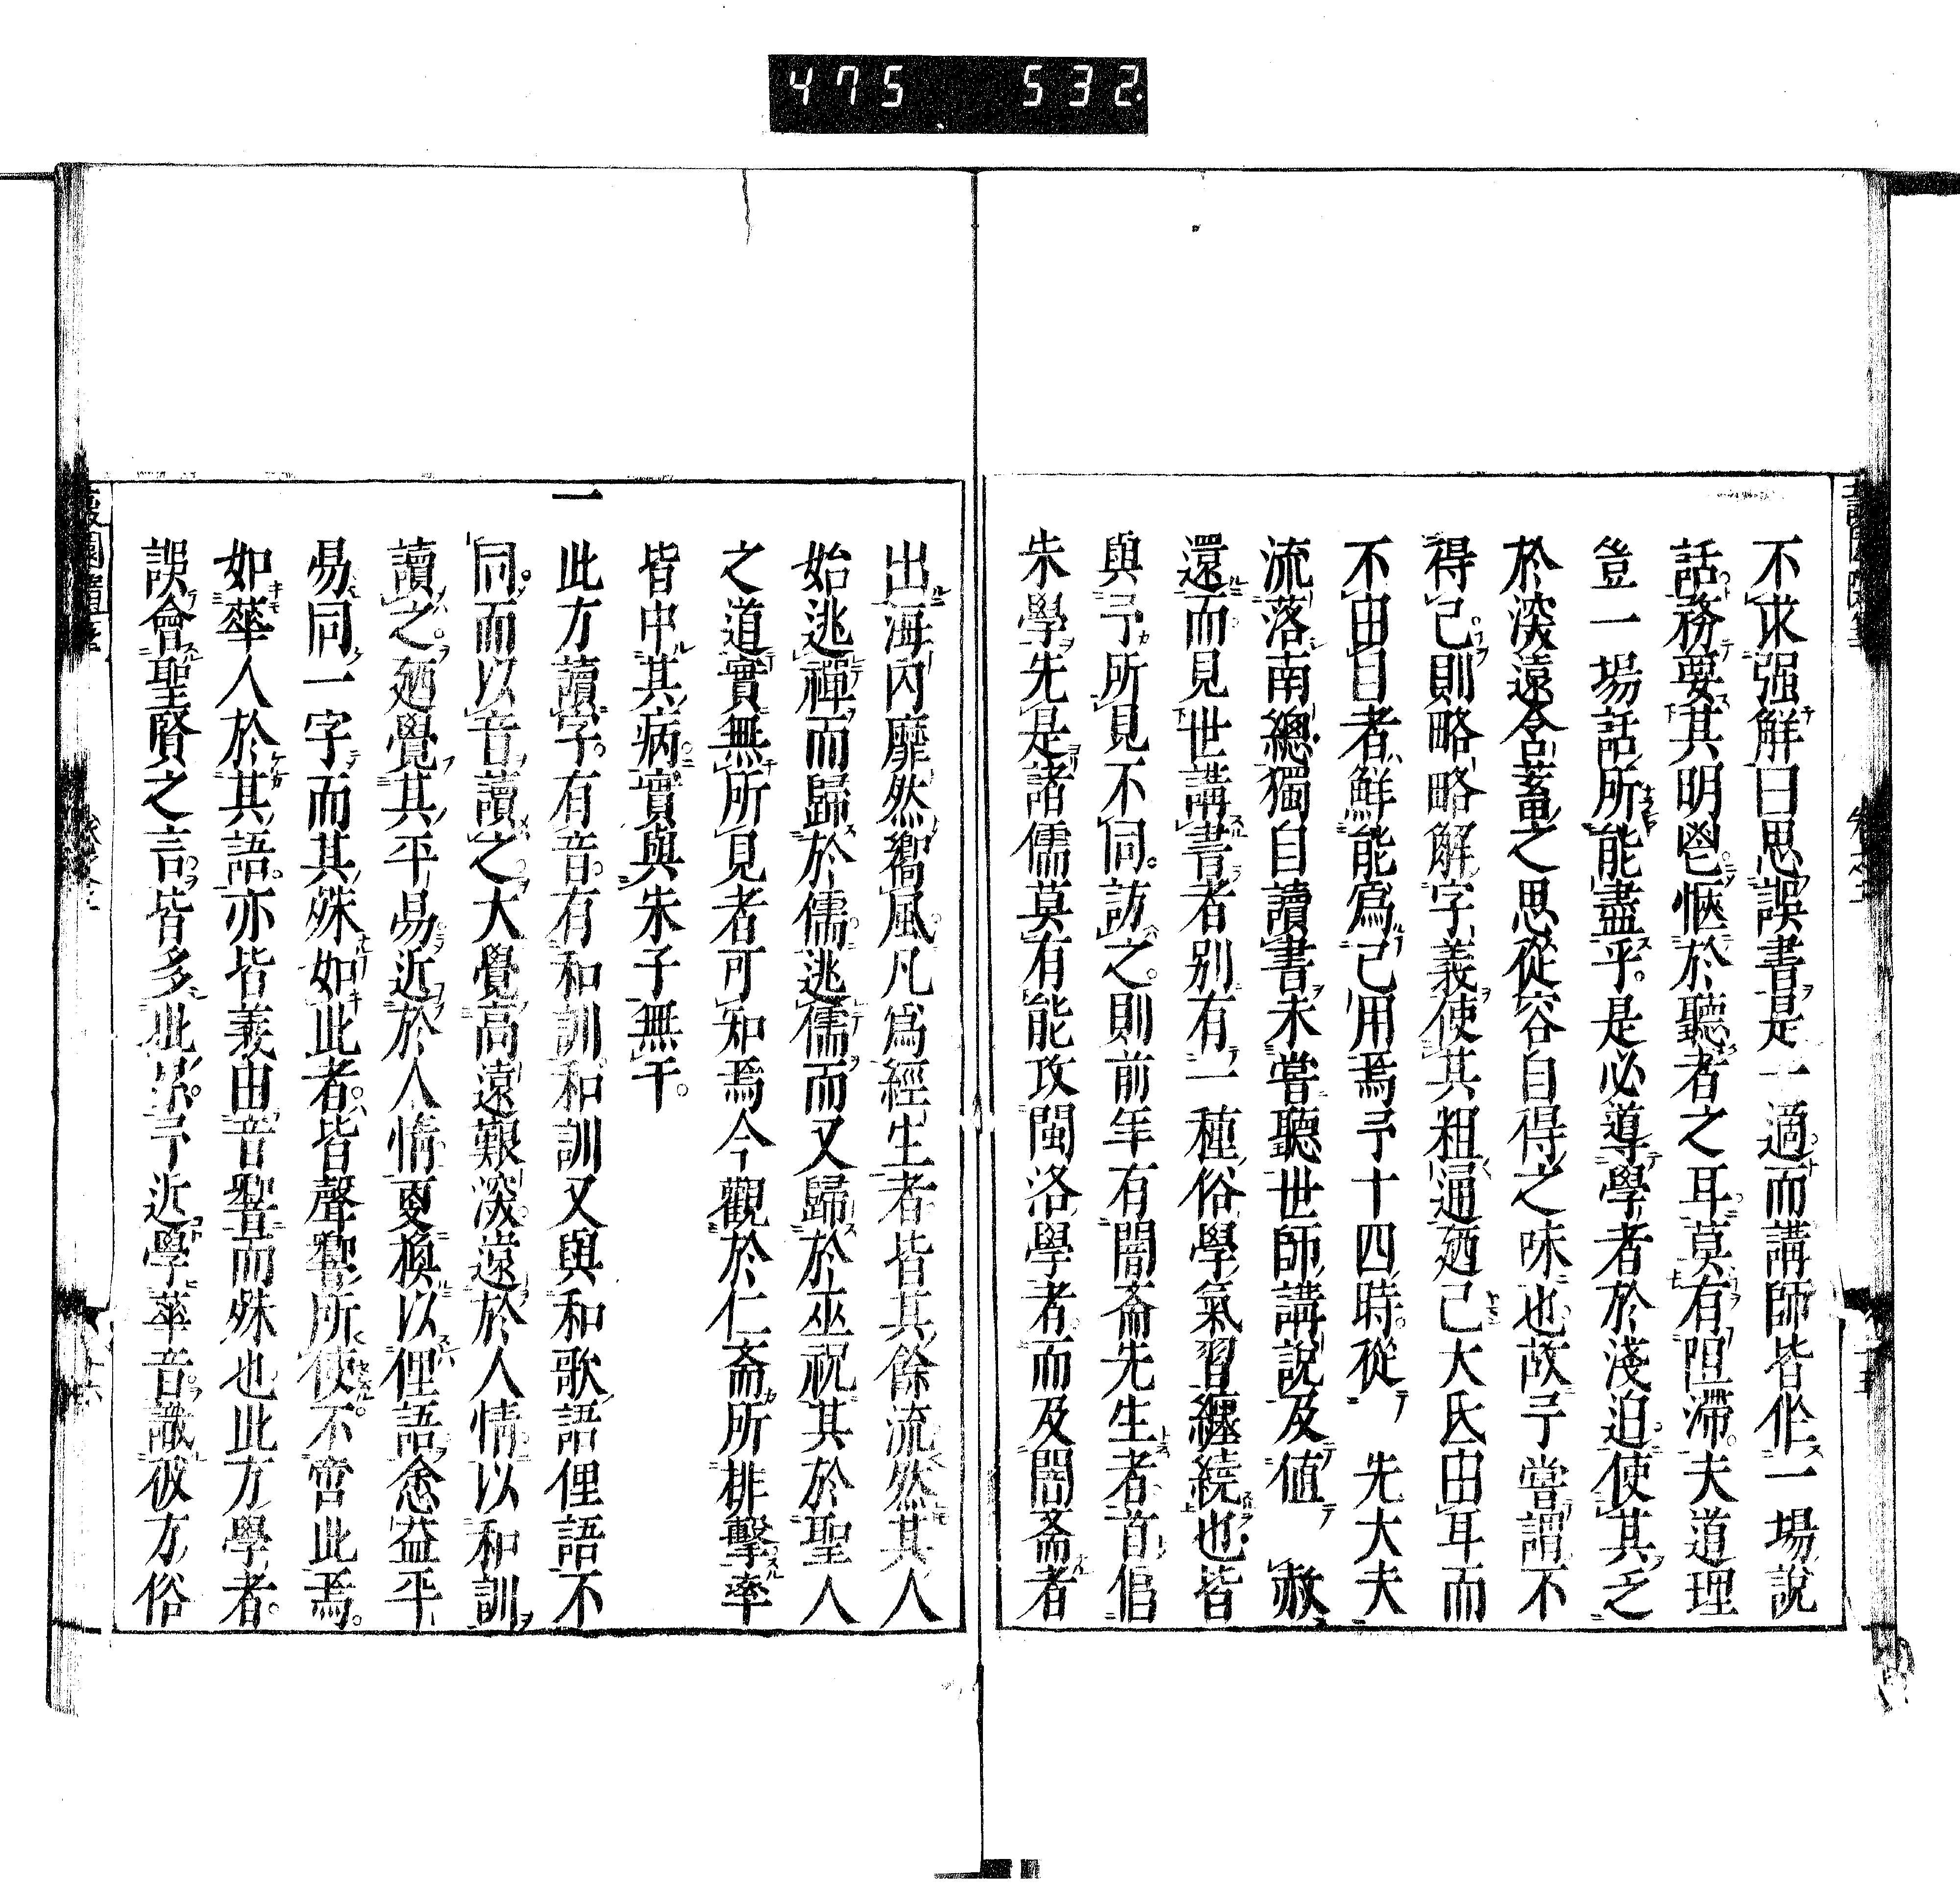 475 532
不求强解曰思誤書是一適而講師皆作一場說
話務要其明鬯愜於聽者之耳莫有阻滯夫道理
豈一場話所能盡乎是必導學者於淺迫使其乏
於深遠含蓄之思從容自得之味也故予嘗謂不
得已則略略解字義使其粗通廼已大氐由耳而
不由目者鮮能爲己用焉予十四時從 先大夫
流落南總獨自讀書未嘗聽世師講說及値 赦
還而見世講書者別有一種俗學氣習纏繞也皆
與予所見不同訪之則前年有闇齋先生者首倡
朱學先是諸儒莫有能攻閩洛學者而及闇齋者
出海內靡然嚮風凡爲經生者皆其餘流然其人
始逃禪而歸於儒逃儒而又歸於巫祝其於聖人
之道實無所見者可知焉今觀於仁齋所排擊率
皆中其病實與朱子無干
一 此方讀字有音有和訓和訓又與和歌語俚語不
同而以音讀之大覺高遠艱深遠於人情以和訓
讀之廼覺其平易近於人情更換以俚語愈益平
易同一字而其殊如此者皆聲響所使不啻此焉
如華人於其語亦皆義由音響而殊也此方學者
誤會聖賢之言皆多此累予近學華音識彼方俗